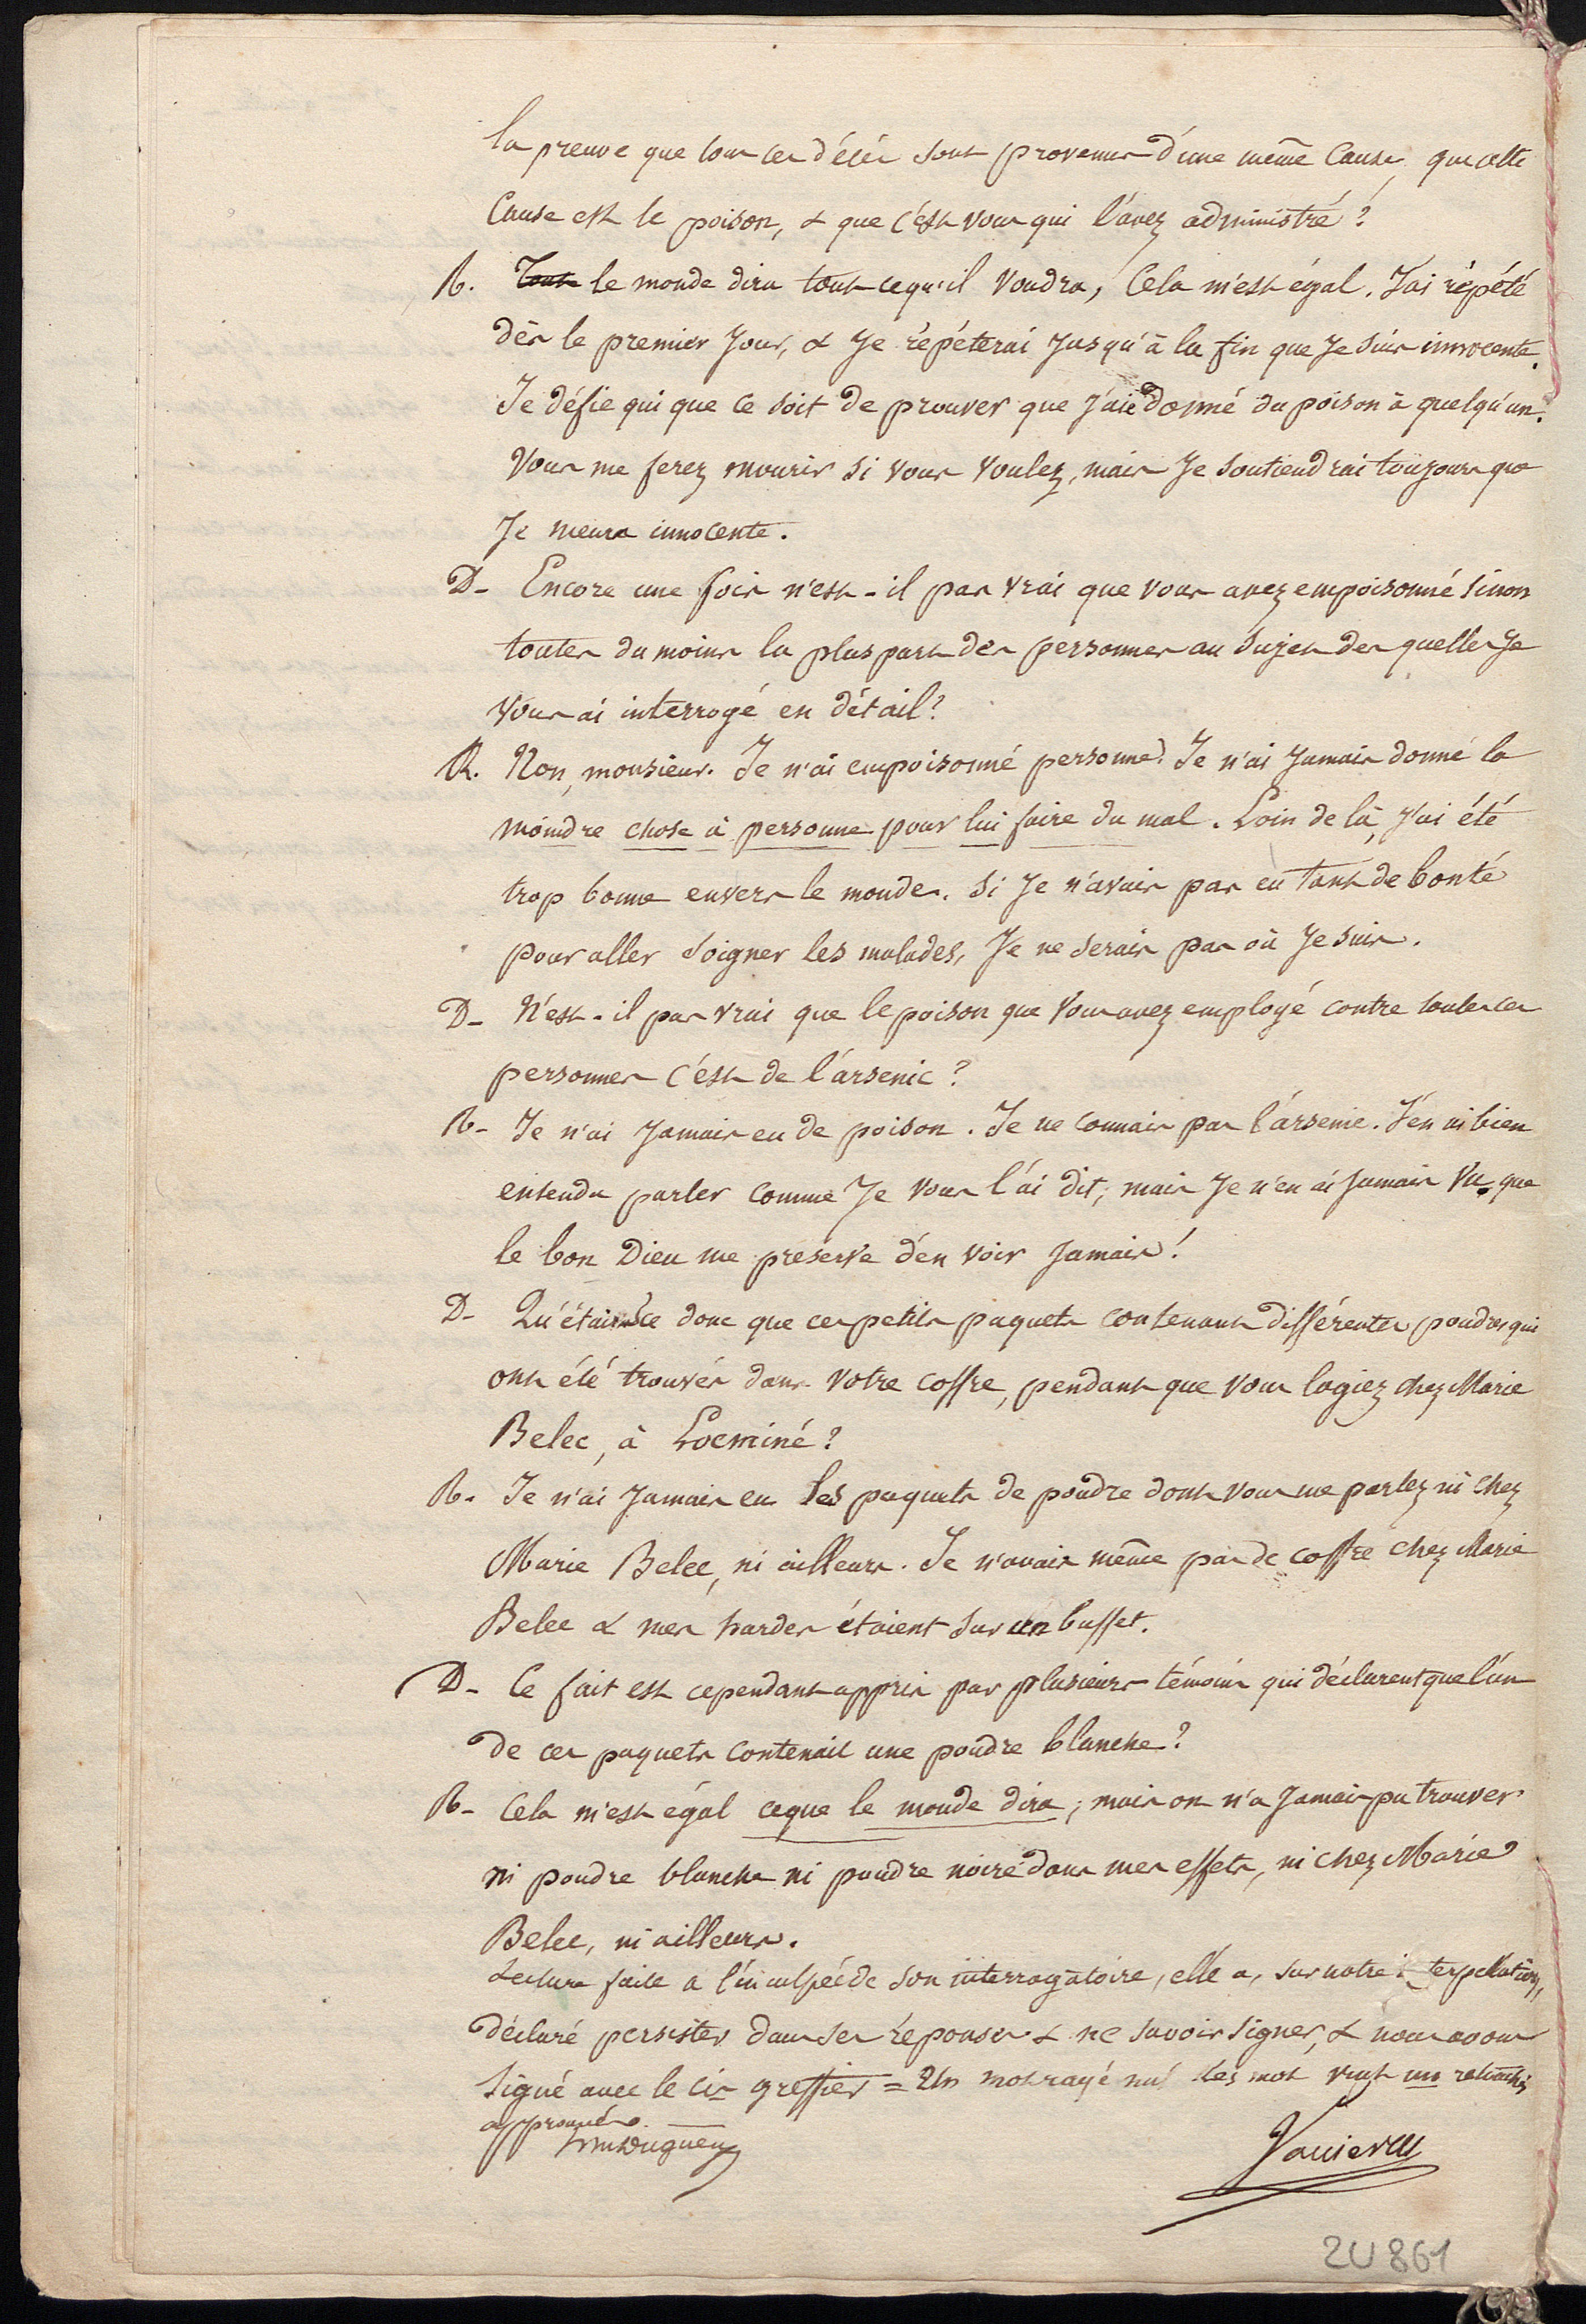 la preuve que tous ces décès sont provenus d'une même Cause, que cette
Cause est le poison, & que c'est vous qui l'avez administré ?
R. Tout le monde dira tout ce qu'il voudra, Cela m'est égal. J'ai répété
dès le premier Jour, & Je répéterai Jusqu'à la fin que Je suis innocente.
Je défie qui que ce soit de prouver que J'aie donné du poison à quelqu'un.
Vous me ferez mourir si vous voulez, mais Je soutiendrai toujours que
Je meurs innocente.
D- Encore une fois n'est-il pas vrai que vous avez empoisonné sinon
toutes du moins la pluspart des personnes au sujet des quelles Je
vous ai interrogé en détail ?
R. Non, monsieur. Je n'ai empoisonné personne. Je n'ai Jamais donné la
moindre chose à personne pour lui faire du mal. Loin de là, J'ai été
trop bonne envers le monde. Si Je n'avais pas eu tant de bonté
pour aller soigner les malades, Je ne serais pas où Je suis.
D- N'est-il pas vrai que le poison que vous avez employé contre toutes ces
personnes c'est de l'arsenic ?
R- Je n'ai Jamais eu de poison. Je ne connais pas l'arsenic. J'en ai bien
entendu parler comme Je vous l'ai dit, mais Je n'en ai Jamais vu, que
le bon Dieu me preserve d'en voir Jamais !
D- Qu'était ce donc que ces petits paquets contenant différentes poudres qui
ont été trouvés dans votre coffre, pendant que vous logiez chez Marie
Belec, à Locminé ?
R. Je n'ai Jamais eu les paquets de poudre dont vous me parlez ni chez
Marie Belec, ni ailleurs. Je n'avais même pas de coffre chez Marie
Belec & mes hardes étaient sur un buffet.
D- Ce fait est cependant appris par plusieurs témoins qui déclarent que l'un
de ces paquets contenait une poudre blanche ?
R- Cela m'est égal ce que le monde dira ; mais on n'a Jamais pu trouver
ni poudre blanche ni poudre noire dans mes effets, ni chez Marie
Belec, ni ailleurs.
Lecture faite a l'inculpée de son interrogatoire, elle a, sur notre interpellation,
déclaré persister dans ses réponses & ne savoir signer, & nous avons
signé avec le cis greffier = Un mot rayé nul les mot un
approuvés.
Vanier
2U861